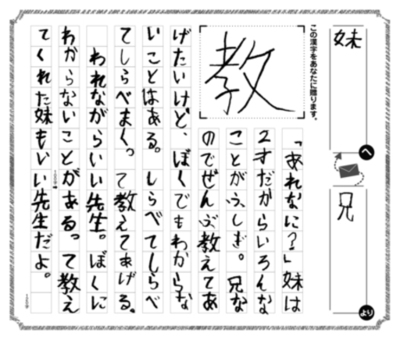 妹へ
兄より
この漢字をあなたに贈ります。
教
「あれなに?」妹は
2才だからいろんな
ことがふしぎ。兄な
のでぜんぶ教えてあ
げたいけど、ぼくでもわからな
いことはある。しらべてしらべ
てしらべまくって教えてあげる。
われながらいい先生。ぼくに
わからないことがあるって教え
てくれた妹もいい先生だよ。